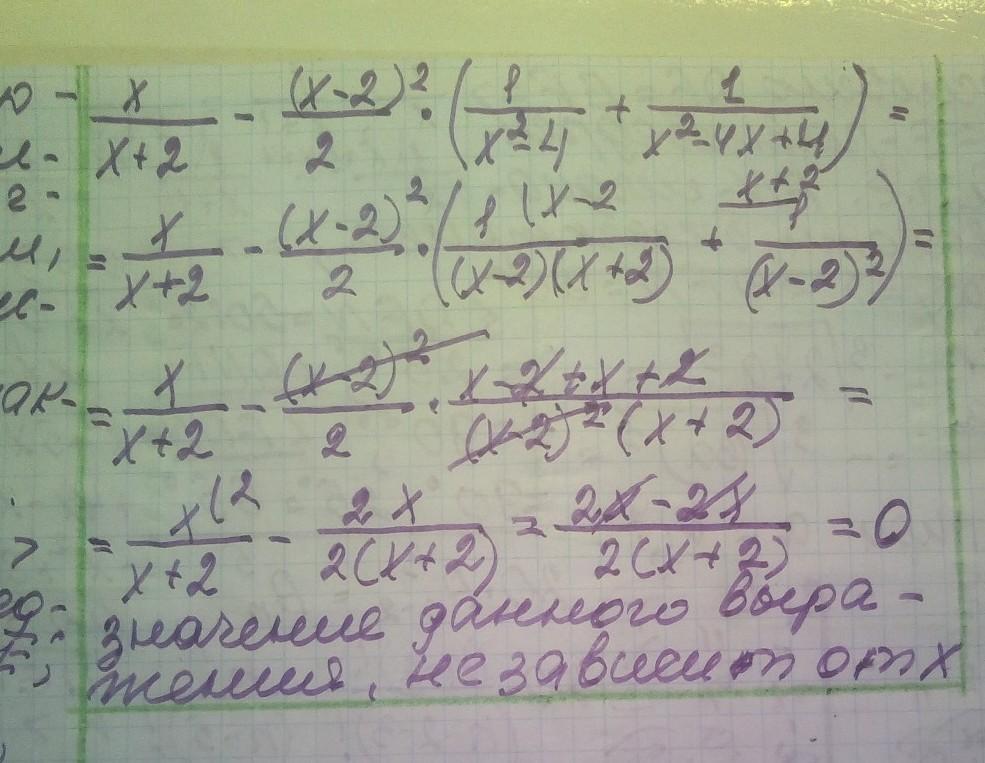 ю - x/(x+2) - (x-2)²/2 · (1/(x²-4) + 1/(x²-4x+4)) =
= x/(x+2) - (x-2)²/2 · (1(x-2/((x-2)(x+2)) + 1 x+2/(x-2)²) =
= x/(x+2) - (x-2)²/2 · (x-2+x+2)/((x-2)²(x+2)) =
= x(2/(x+2) - 2x/(2(x+2)) = (2x-2x)/(2(x+2)) = 0
значение данного выра-
жения, не зависит от x